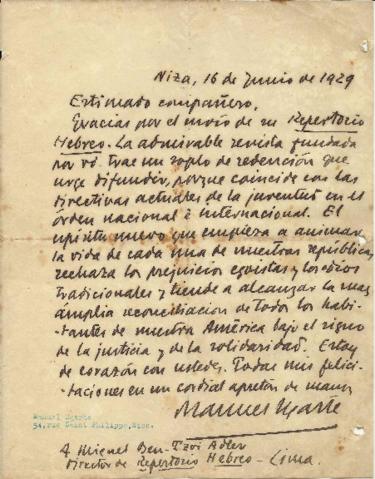 Niza, 16 de Junio de 1929
Estimado compañero,
Gracias por el envío de su Repertorio
Hebreo. La admirable revista fundada
por vd. trae un soplo de redención que
urge difundir, porque coincide con las
directivas actuales de la juventud en el
órden nacional é internacional. El
espíritu nuevo que empieza a animar
la vida de cada una de nuestras repúblicas
rechaza los prejuicios egoistas y los odios
tradicionales y tiende a alcanzar la mas
ámplia reconciliación de todos los habi-
tantes de nuestra América bajo el signo
de la justicia y de la solidaridad. Estoy
de corazón con ustedes. Todas mis felici-
taciones en un cordial apretón de manos
Manuel Ugarte
Manuel Ugarte
54, rue Saint Philippe, Nice.
A Miguel Ben-Tzvi Adler
Director de Repertorio Hebreo - Lima.